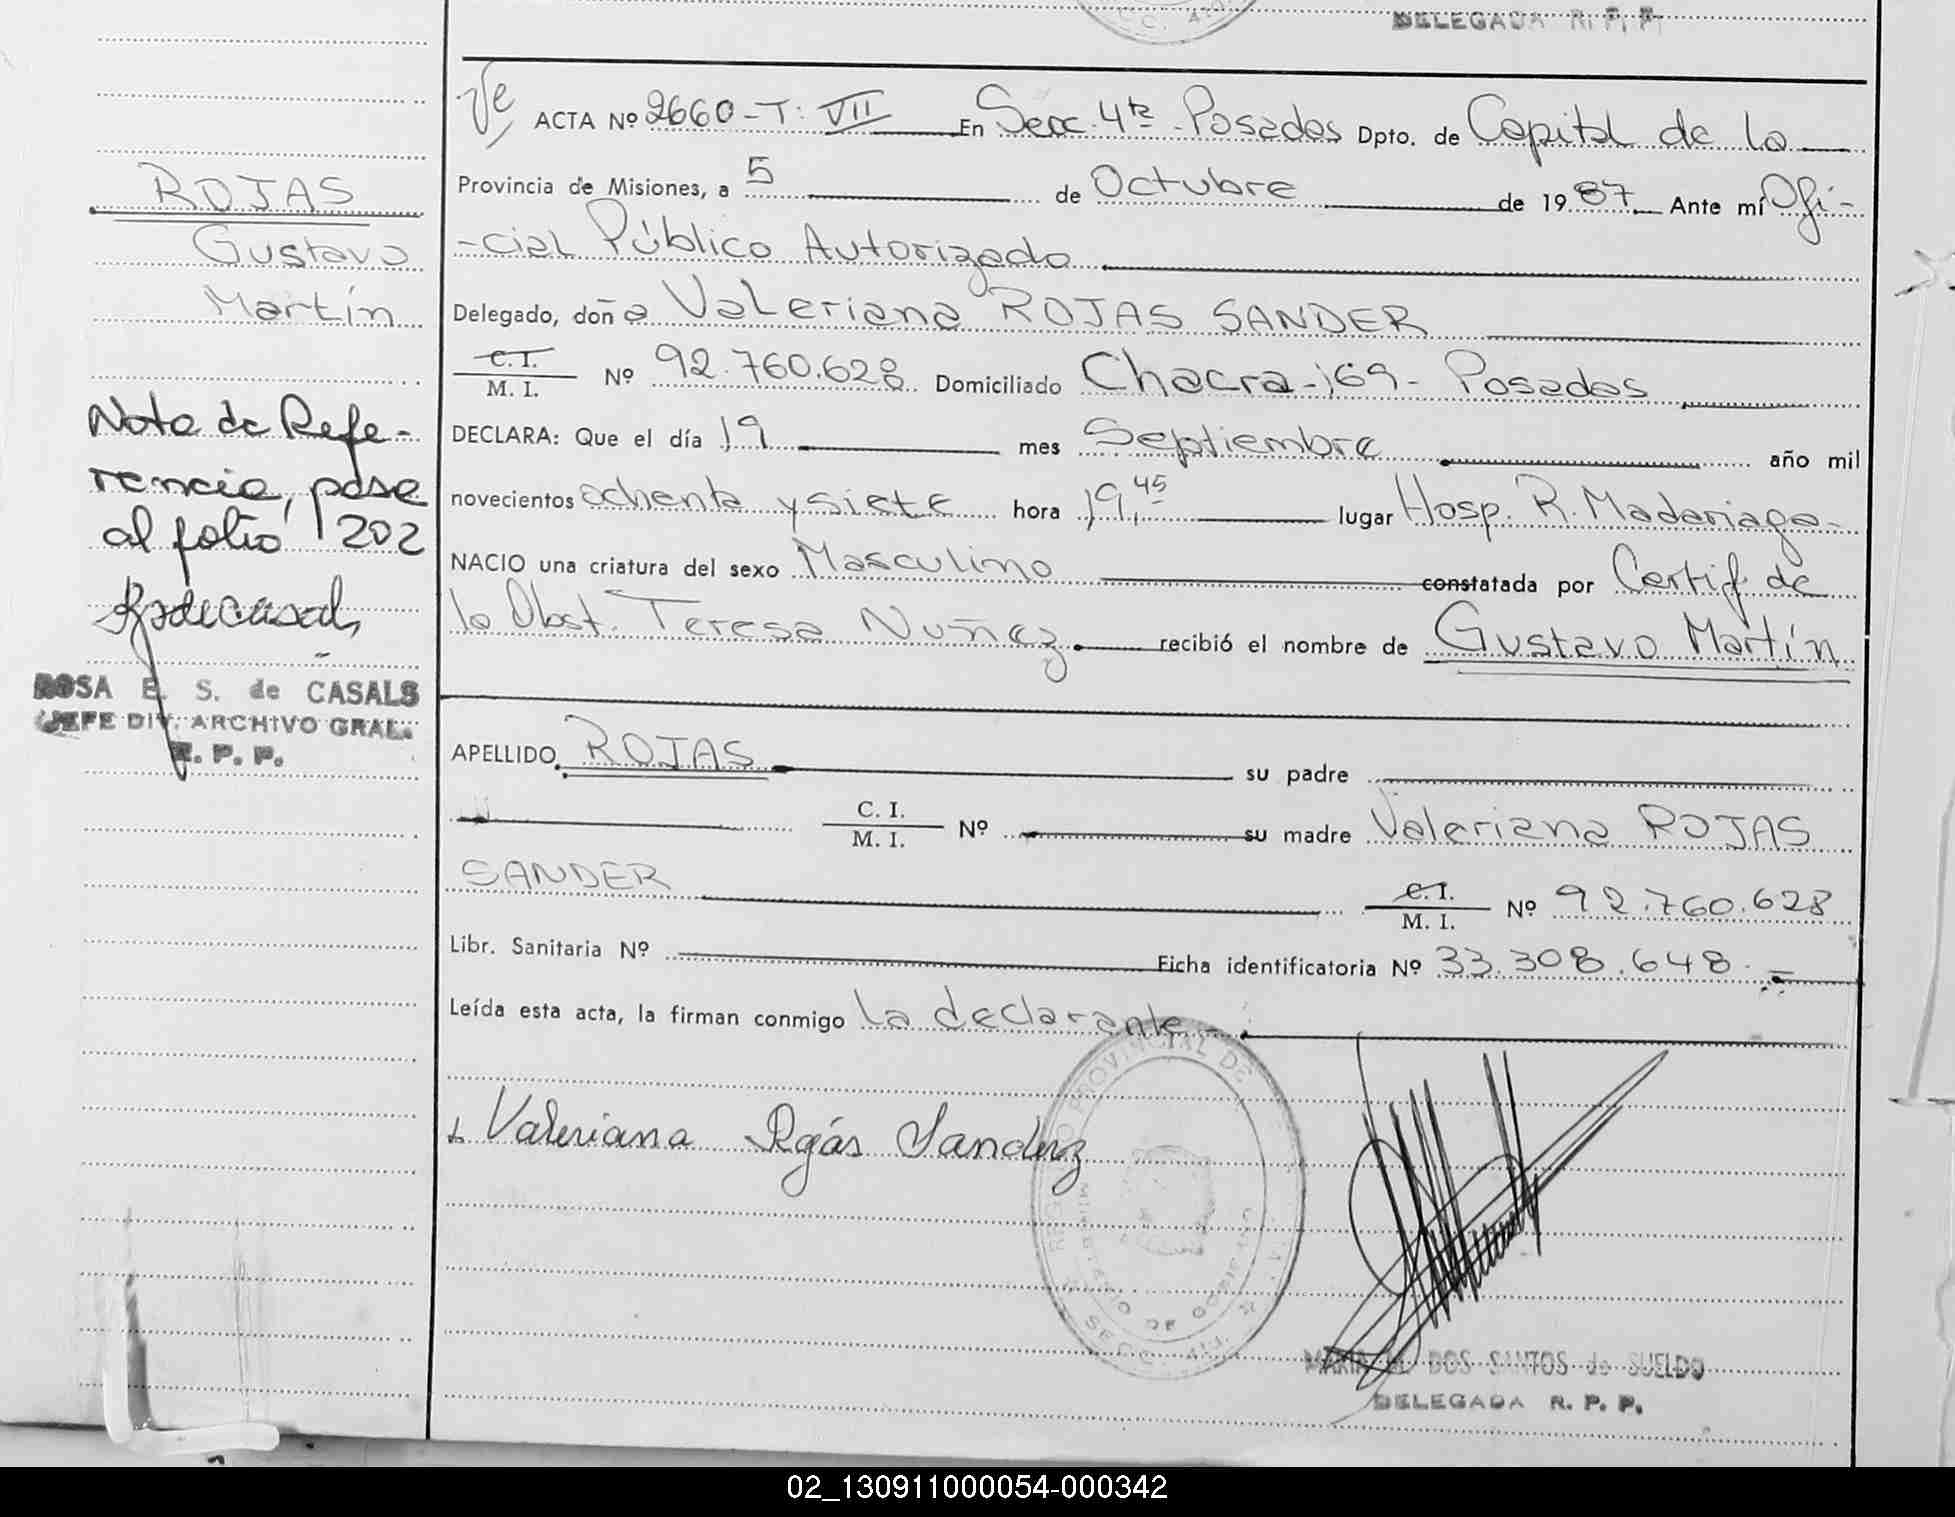 DELEGADA R. P. P.
ACTA Nº 2660 - T: VII En Secc. 4ta - Posadas Dpto. de Capital de la
Provincia de Misiones, a 5 de Octubre de 1987 Ante mí Ofi-
-cial Público Autorizado
Delegado, doña Valeriana ROJAS SANDER
C.I. / M. I. Nº 92.760.628 Domiciliado Chacra -169- Posadas
DECLARA: Que el día 19 mes Septiembre año mil
novecientos ochenta y siete hora 19,45 lugar Hosp. R. Madariaga-
NACIO una criatura del sexo Masculino constatada por Certif. de
la Obst. Teresa Nuñez recibió el nombre de Gustavo Martín
APELLIDO ROJAS su padre
C. I. / M. I. Nº su madre Valeriana ROJAS
SANDER C.I. / M. I. Nº 92.760.628
Libr. Sanitaria Nº Ficha identificatoria Nº 33.308.648.-
Leída esta acta, la firman conmigo La declarante.-
Valeriana Rojás Sander
REGISTRO PROVINCIAL DE
MINISTERIO DE GOBIERNO
SECC. 4ta.
MARIA DOS SANTOS de SUELDO
DELEGADA R. P. P.
ROJAS
Gustavo
Martín
Nota de Refe-
rencia, pase
al folio 1202
ROSA E. S. de CASALS
JEFE DIV. ARCHIVO GRAL.
R. P. P.
02_130911000054-000342